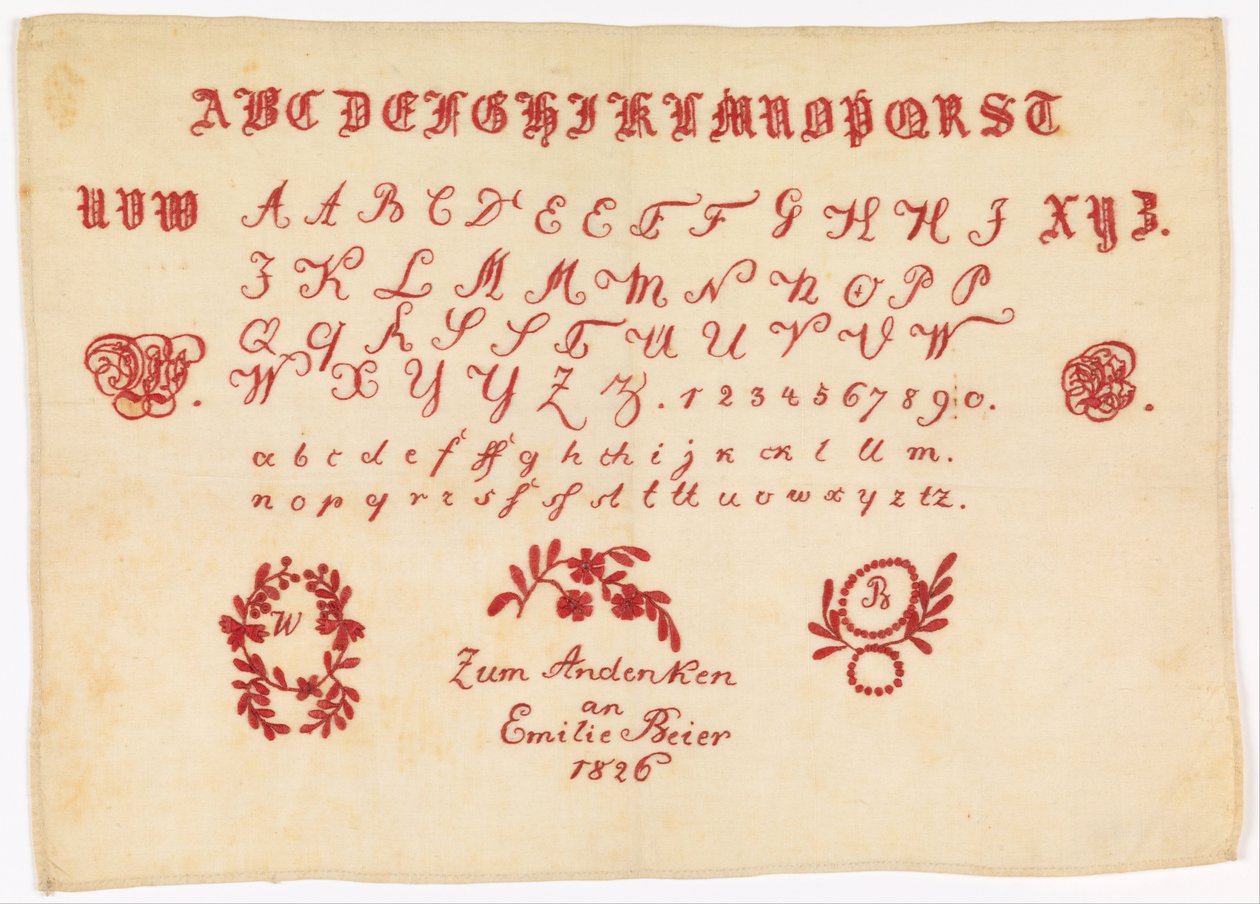 A B C D E F G H I K L M N O P Q R S T
U V W
A A B C D E E F F G H H J
X Y Z.
J K L M M M N N O P P
Q q R S S T U U V V W
W X Y Y Z Z. 1 2 3 4 5 6 7 8 9 0.
a b c d e f ff g h ch i j k ck l ll m.
n o p q r r s ſ ſſ ſt t tt u v w x y z tz.
W
B
Zum Andenken
an
Emilie Beier
1826